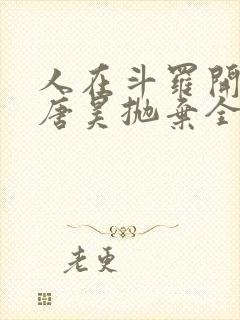 人在斗羅開
唐昊拋棄全
老更